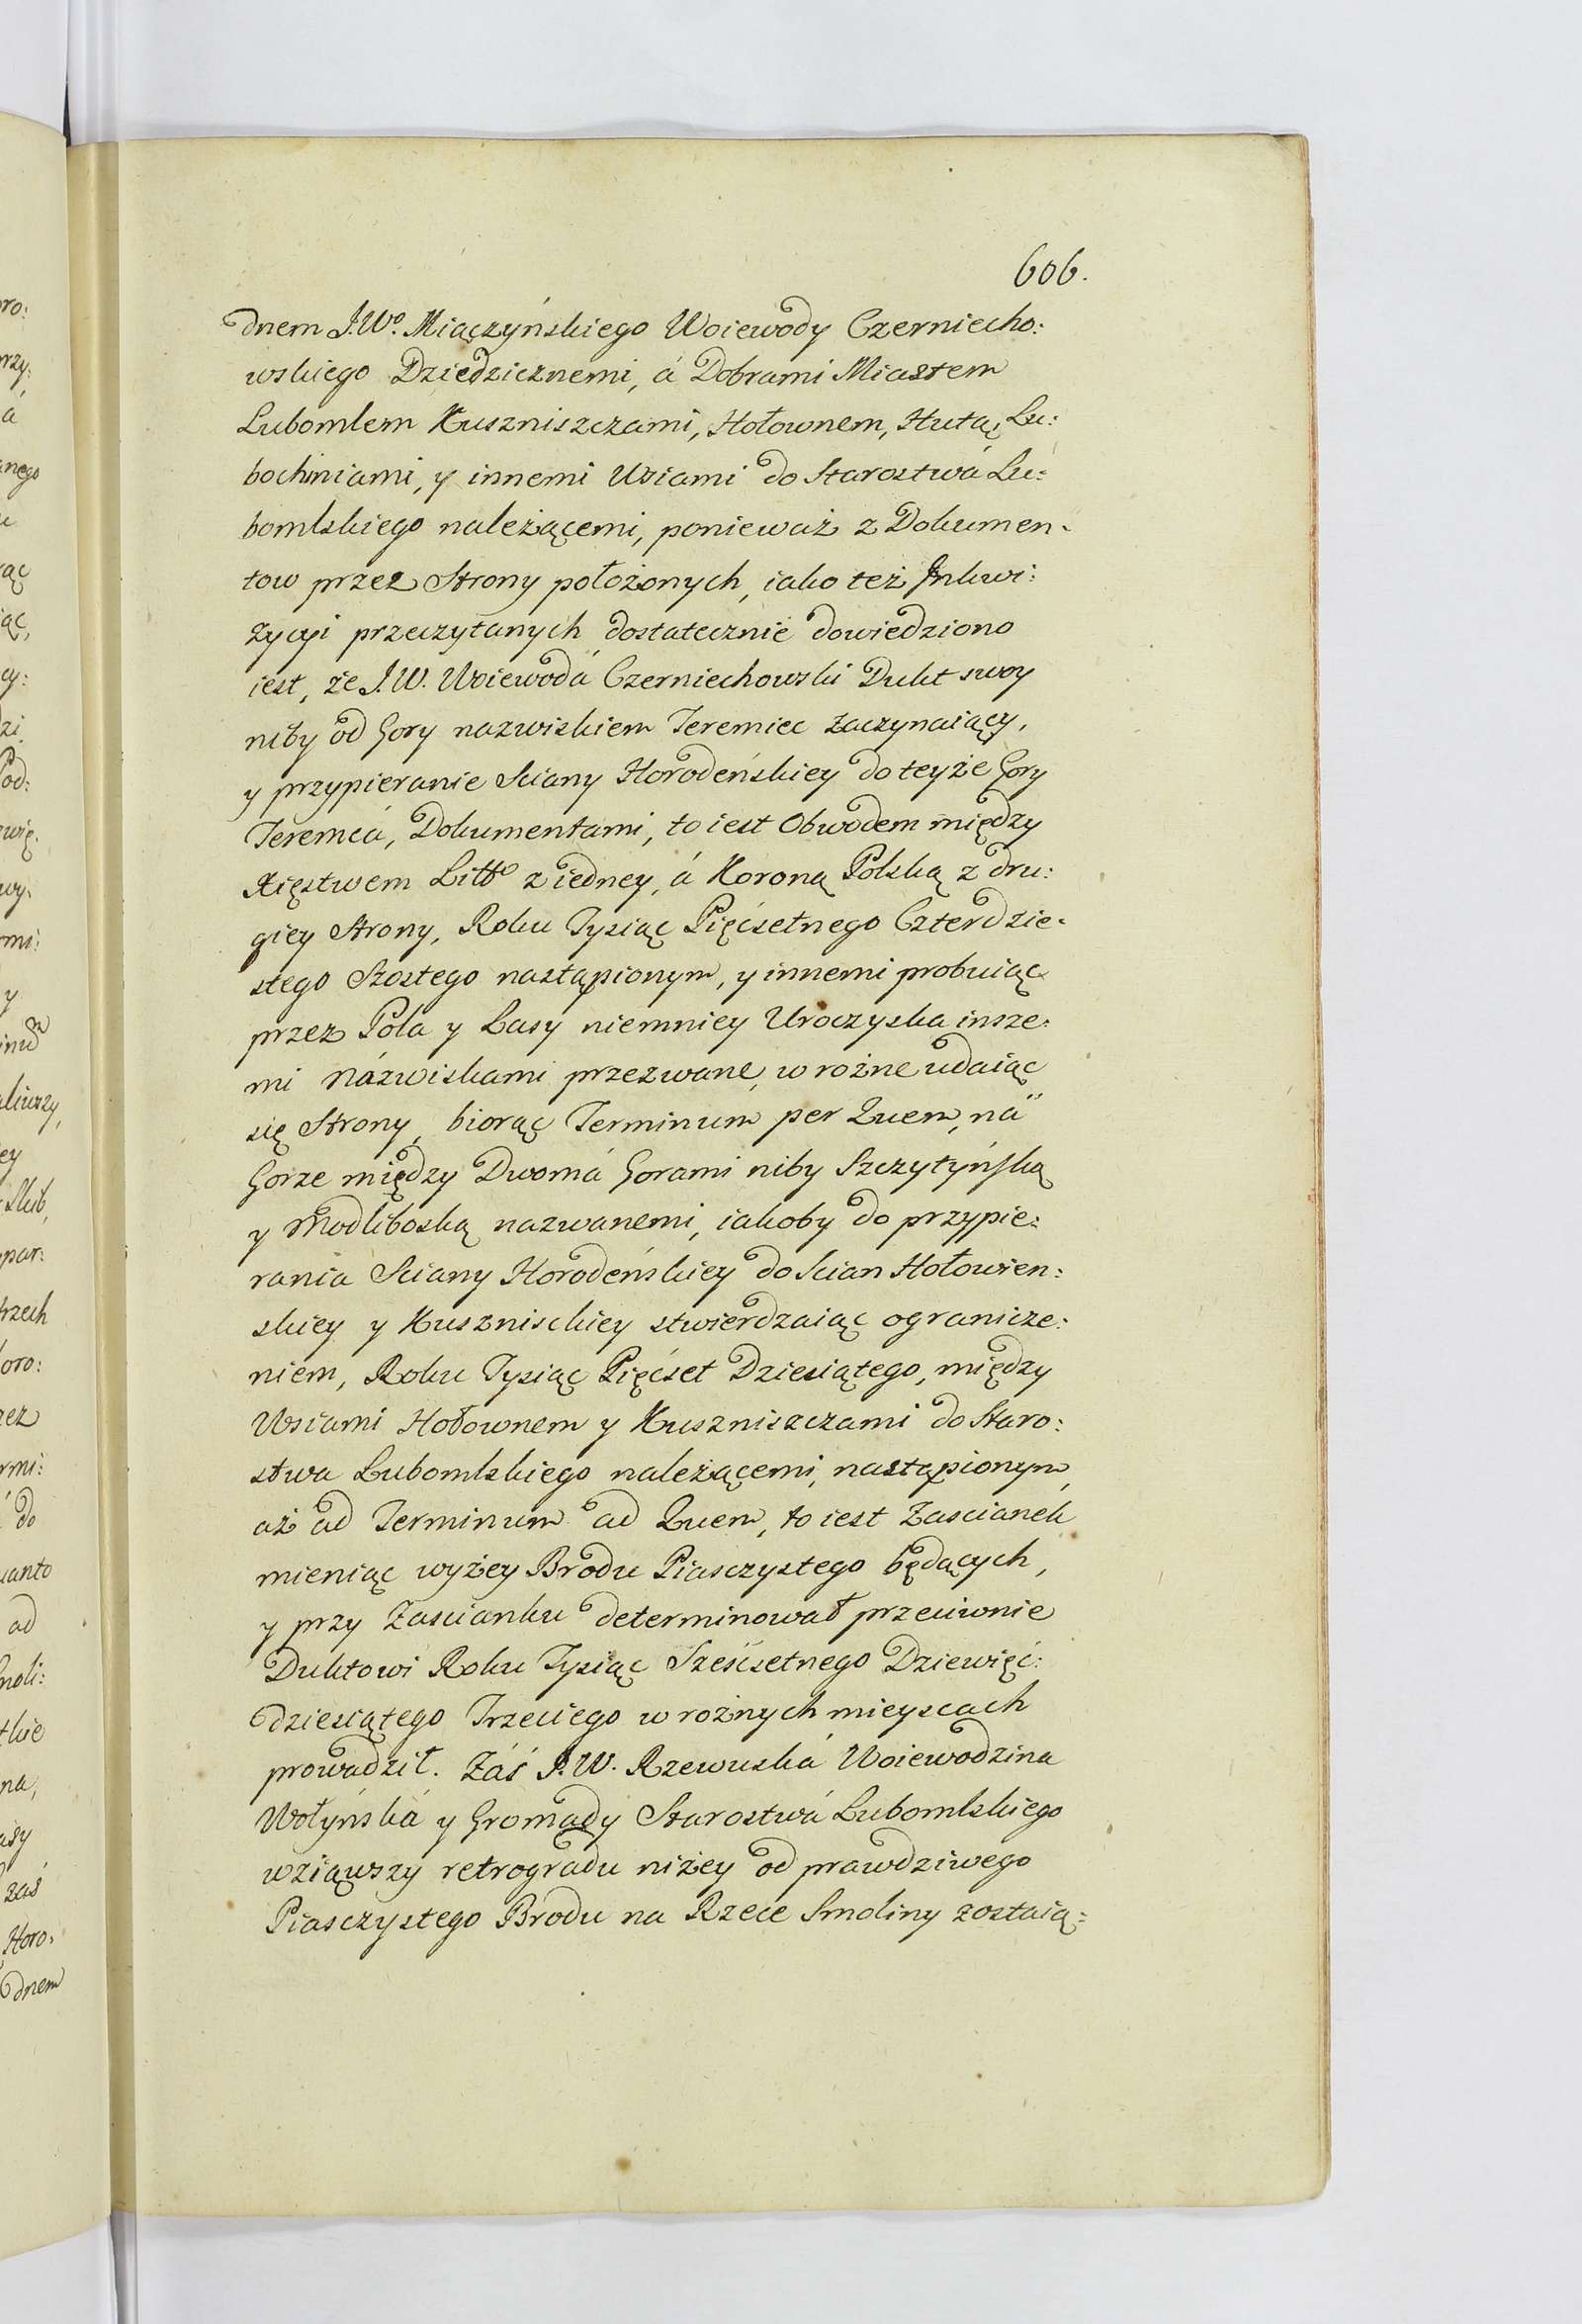 606.
dnem J.Wº. Miączyńskiego Woiewody Czerniecho:
wskiego Dziedzicznemi, á Dobrami Miastem
Lubomlem Kuszniszczami, Hołownem, Hutą, Lu:
bochiniami, y innemi Wsiami do Starostwá Lu:
bomlskiego należącemi, ponieważ z Dokumen-
tow przez Strony położonych, iako też Inkwi:
zycyi przeczytanych dostatecznie dowiedziono
iest, że J.W. Woiewodá Czerniechowski Dukt swoy
niby od Gory nazwiskiem Jeremiec zaczynaiący,
y przypieranie Sciany Horodeńskiey do teyże Gory
Jeremcá, Dokumentami, to iest Obwodem między
Xięstwem Littº z iedney, á Koroną Polską z dru:
giey Strony, Roku Tysiąc Pięćsetnego Czterdzie-
stego Szostego nastąpionym, y innemi probuiąc
przez Pola y Lasy niemniey Uroczyska insze-
mi názwiskami przezwane, w rożne udaiąc
się Strony, biorąc Terminum per Quem, ná
Gorze między Dwomá Gorami niby Szczytyńską
y Modliboską nazwanemi, iakoby do przypie:
rania Sciany Horodeńskiey do Scian Hołowien:
skiey y Kusznisckiey stwierdzaiąc ogranicze:
niem, Roku Tysiąc Pięćset Dziesiątego, między
Wsiami Hołownem y Kuszniszczami do Staro:
stwa Lubomlskiego należącemi, nastąpionym,
aż ad Terminum ad Quem, to iest Zascianek
mieniąc wyżey Brodu Piasczystego będących,
y przy Zascianku determinował przeciwnie
Duktowi Roku Tysiąc Sześćsetnego Dziewięć:
dziesiątego Trzeciego w rożnych mieyscach
prowadził. Záś J.W. Rzewuská Woiewodzina
Wołyńská y Gromady Starostwá Lubomlskiego
wziąwszy retrogradu niżey od prawdziwego
Piasczystego Brodu na Rzece Smoliny zostaią: